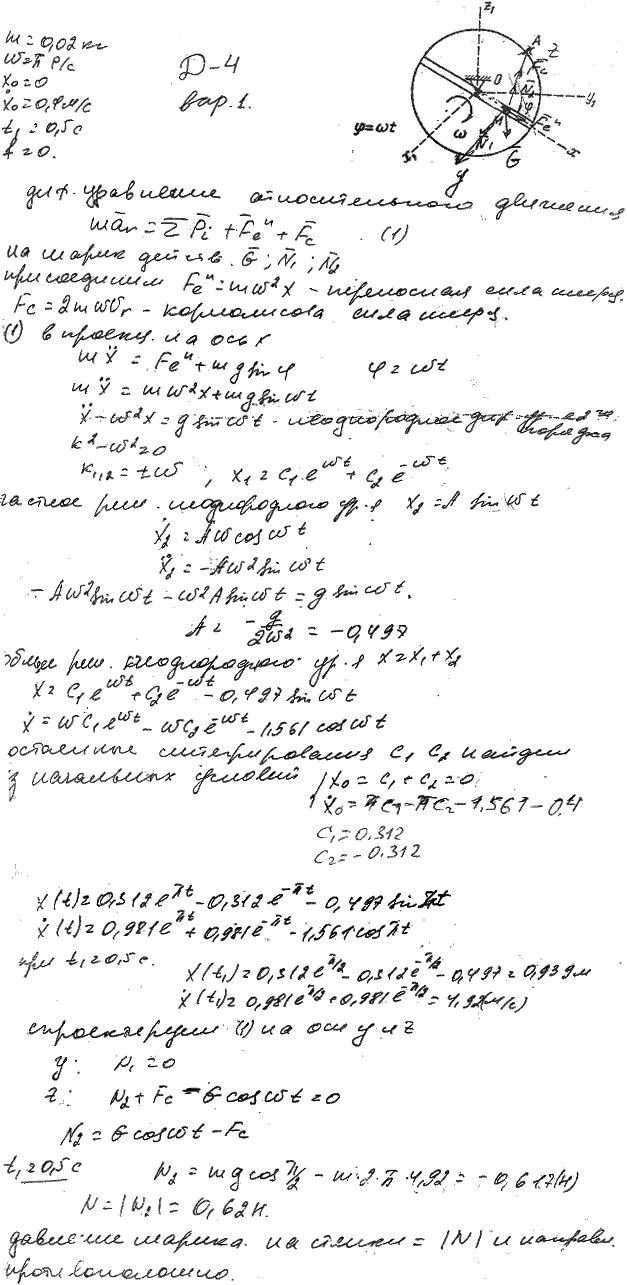 m = 0,02 кг
ω = π р/с
x₀ = 0
ẋ₀ = 0,4 м/с
t₁ = 0,5 с
f = 0.
Д-4
вар. 1.
z₁
A
z
F̄c
N̄₂
O
y₁
φ
F̄eᵘ
φ = ωt
ω
N̄₁
Ḡ
x
y
диф. уравнение относительного движения
mār = ΣP̄i + F̄eᵘ + F̄c (1)
на шарик действ. Ḡ; N̄₁; N̄₂
присоединим Feᵘ = mω²x - переносная сила инерц.
Fc = 2mωVr - кориолисова сила инерц.
(1) в проекц. на ось x
mẍ = Feᵘ + mg sin φ φ = ωt
mẍ = mω²x + mg sin ωt
ẍ - ω²x = g sin ωt - неоднородное диф. ур-е 2го порядка
k² - ω² = 0
k₁,₂ = ±ω ; x₁ = C₁e^ωt + C₂e^-ωt
частное реш. неоднородного ур-я x₂ = A sin ωt
ẋ₂ = Aω cos ωt
ẍ₂ = -Aω² sin ωt
- Aω² sin ωt - ω²A sin ωt = g sin ωt.
A = - g/2ω² = -0,497
общее реш. неоднородного ур-я x = x₁ + x₂
x = C₁e^ωt + C₂e^-ωt - 0,497 sin ωt
ẋ = ωC₁e^ωt - ωC₂e^-ωt - 1,561 cos ωt
интегрирования C₁ C₂ найдем
з начальных условий x₀ = C₁ + C₂ = 0
ẋ₀ = πC₁ - πC₂ - 1.561 - 0.4
C₁ = 0.312
C₂ = - 0.312
x(t) = 0,312e^πt - 0,312e^-πt - 0,497 sin πt
ẋ(t) = 0,981e^πt + 0,981e^-πt - 1,561 cos πt
при t₁ = 0,5 с. x(t₁) = 0,312e^π/2 - 0,312e^-π/2 - 0,497 = 0,939 м
ẋ(t₁) = 0,981e^π/2 + 0,981e^-π/2 = 4,92 (м/с)
спроектируем (1) на оси y и z
y: N₁ = 0
z: N₂ + Fc - G cos ωt = 0
N₂ = G cos ωt - Fc
t₁ = 0,5 с N₂ = mg cos π/2 - m·2·π·4,92 = -0,617 (Н)
N = |N₂| = 0,62 Н.
давление шарика на стенки = |N| и направл.
противоположно.